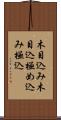 木目込み木
目込極め込
み極込